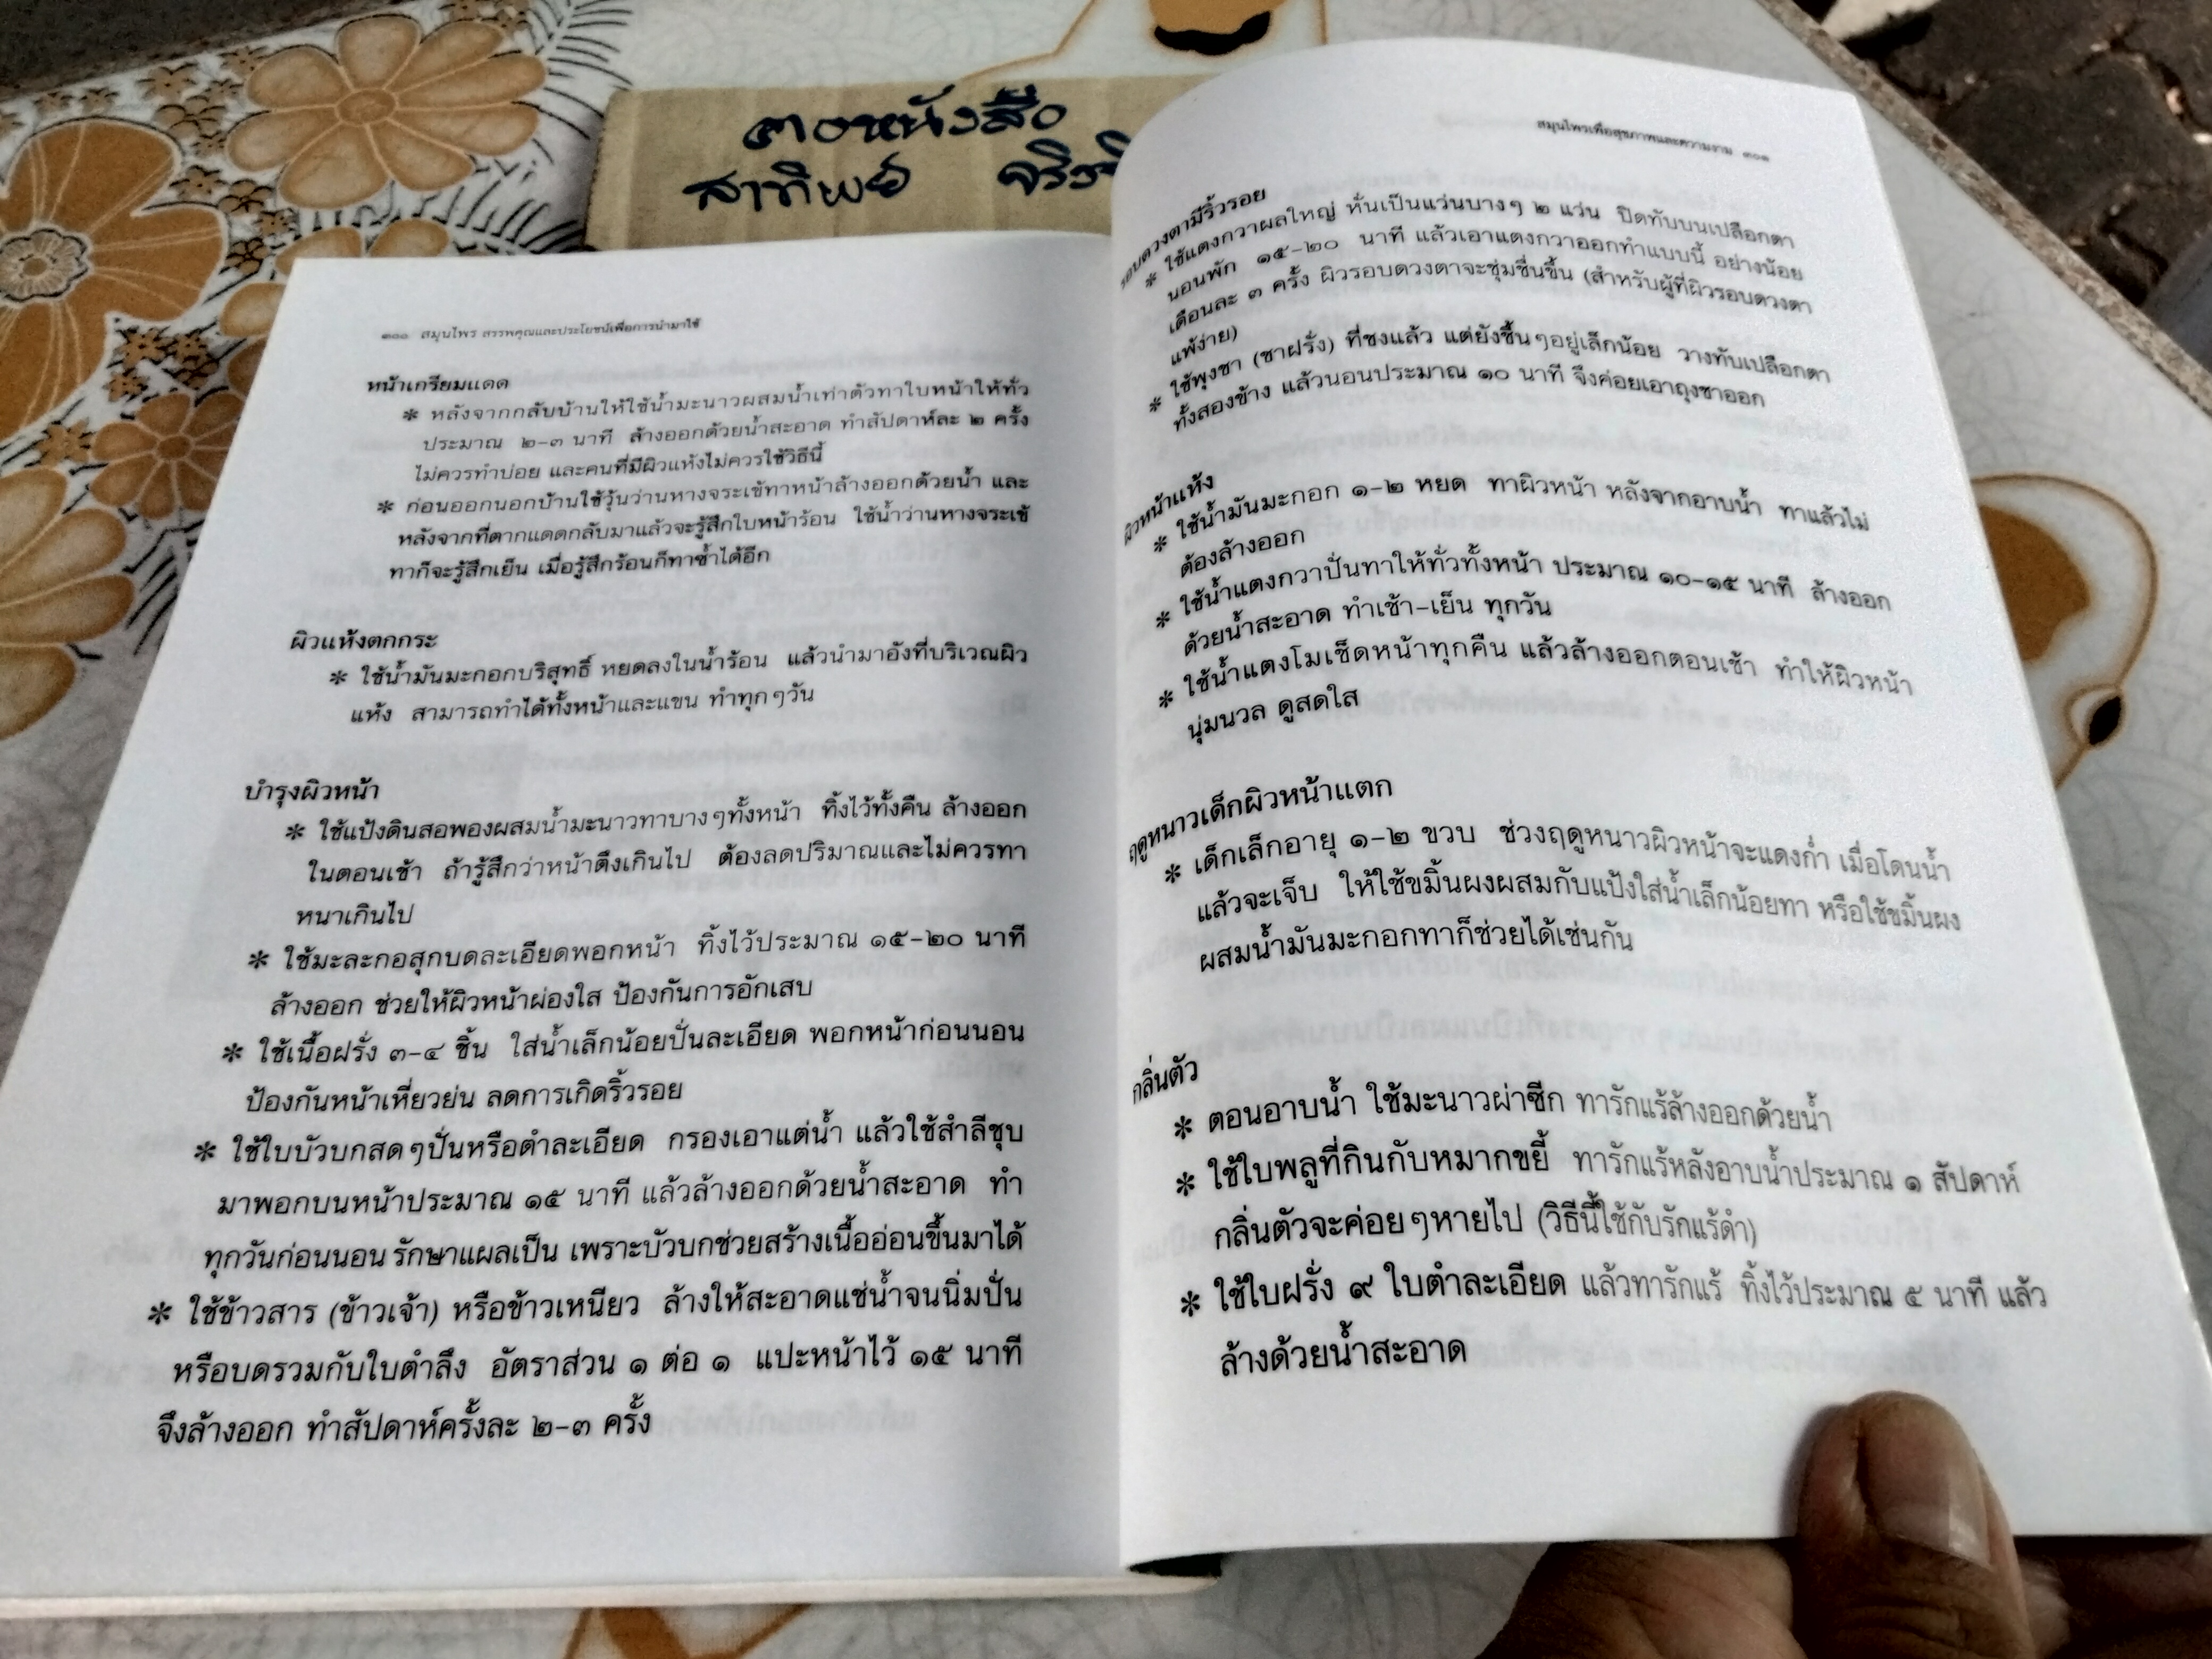 ๓๐หนังสือ
สาทิพย์ จริงใ
๓๐๐ สมุนไพร สรรพคุณและประโยชน์เพื่อการนำมาใช้
หน้าเกรียมแดด
* หลังจากกลับบ้านให้ใช้น้ำมะนาวผสมน้ำเท่าตัวทาใบหน้าให้ทั่ว
ประมาณ ๒-๓ นาที ล้างออกด้วยน้ำสะอาด ทำสัปดาห์ละ ๒ ครั้ง
ไม่ควรทำบ่อย และคนที่มีผิวแห้งไม่ควรใช้วิธีนี้
* ก่อนออกนอกบ้านใช้วุ้นว่านหางจระเข้ทาหน้าล้างออกด้วยน้ำ และ
หลังจากที่ตากแดดกลับมาแล้วจะรู้สึกใบหน้าร้อน ใช้น้ำว่านหางจระเข้
ทาก็จะรู้สึกเย็น เมื่อรู้สึกร้อนก็ทาซ้ำได้อีก
ผิวแห้งตกกระ
* ใช้น้ำมันมะกอกบริสุทธิ์ หยดลงในน้ำร้อน แล้วนำมาอังที่บริเวณผิว
แห้ง สามารถทำได้ทั้งหน้าและแขน ทำทุกๆวัน
บำรุงผิวหน้า
* ใช้แป้งดินสอพองผสมน้ำมะนาวทาบางๆทั้งหน้า ทิ้งไว้ทั้งคืน ล้างออก
ในตอนเช้า ถ้ารู้สึกว่าหน้าตึงเกินไป ต้องลดปริมาณและไม่ควรทา
หนาเกินไป
* ใช้มะละกอสุกบดละเอียดพอกหน้า ทิ้งไว้ประมาณ ๑๕-๒๐ นาที
ล้างออก ช่วยให้ผิวหน้าผ่องใส ป้องกันการอักเสบ
* ใช้เนื้อฝรั่ง ๓-๔ ชิ้น ใส่น้ำเล็กน้อยปั่นละเอียด พอกหน้าก่อนนอน
ป้องกันหน้าเหี่ยวย่น ลดการเกิดริ้วรอย
* ใช้ใบบัวบกสดๆปั่นหรือตำละเอียด กรองเอาแต่น้ำ แล้วใช้สำลีชุบ
มาพอกบนหน้าประมาณ ๑๕ นาที แล้วล้างออกด้วยน้ำสะอาด ทำ
ทุกวันก่อนนอน รักษาแผลเป็น เพราะบัวบกช่วยสร้างเนื้ออ่อนขึ้นมาได้
* ใช้ข้าวสาร (ข้าวเจ้า) หรือข้าวเหนียว ล้างให้สะอาดแช่น้ำจนนิ่มปั่น
หรือบดรวมกับใบตำลึง อัตราส่วน ๑ ต่อ ๑ แปะหน้าไว้ ๑๕ นาที
จึงล้างออก ทำสัปดาห์ครั้งละ ๒-๓ ครั้ง
สมุนไพรเพื่อสุขภาพและความงาม ๓๐๑
รอบดวงตามีริ้วรอย
* ใช้แตงกวาผลใหญ่ หั่นเป็นแว่นบางๆ ๒ แว่น ปิดทับบนเปลือกตา
นอนพัก ๑๕-๒๐ นาที แล้วเอาแตงกวาออกทำแบบนี้ อย่างน้อย
เดือนละ ๓ ครั้ง ผิวรอบดวงตาจะชุ่มชื่นขึ้น (สำหรับผู้ที่ผิวรอบดวงตา
แพ้ง่าย)
* ใช้พุงชา (ชาฝรั่ง) ที่ชงแล้ว แต่ยังชื้นๆอยู่เล็กน้อย วางทับเปลือกตา
ทั้งสองข้าง แล้วนอนประมาณ ๑๐ นาที จึงค่อยเอาถุงชาออก
ผิวหน้าแห้ง
* ใช้น้ำมันมะกอก ๑-๒ หยด ทาผิวหน้า หลังจากอาบน้ำ ทาแล้วไม่
ต้องล้างออก
* ใช้น้ำแตงกวาปั่นทาให้ทั่วทั้งหน้า ประมาณ ๑๐-๑๕ นาที ล้างออก
ด้วยน้ำสะอาด ทำเช้า-เย็น ทุกวัน
* ใช้น้ำแตงโมเช็ดหน้าทุกคืน แล้วล้างออกตอนเช้า ทำให้ผิวหน้า
นุ่มนวล ดูสดใส
ฤดูหนาวเด็กผิวหน้าแตก
* เด็กเล็กอายุ ๑-๒ ขวบ ช่วงฤดูหนาวผิวหน้าจะแดงก่ำ เมื่อโดนน้ำ
แล้วจะเจ็บ ให้ใช้ขมิ้นผงผสมกับแป้งใส่น้ำเล็กน้อยทา หรือใช้ขมิ้นผง
ผสมน้ำมันมะกอกทาก็ช่วยได้เช่นกัน
กลิ่นตัว
* ตอนอาบน้ำ ใช้มะนาวผ่าซีก ทารักแร้ล้างออกด้วยน้ำ
* ใช้ใบพลูที่กินกับหมากขยี้ ทารักแร้หลังอาบน้ำประมาณ ๑ สัปดาห์
กลิ่นตัวจะค่อยๆหายไป (วิธีนี้ใช้กับรักแร้ดำ)
* ใช้ใบฝรั่ง ๙ ใบตำละเอียด แล้วทารักแร้ ทิ้งไว้ประมาณ ๕ นาที แล้ว
ล้างด้วยน้ำสะอาด